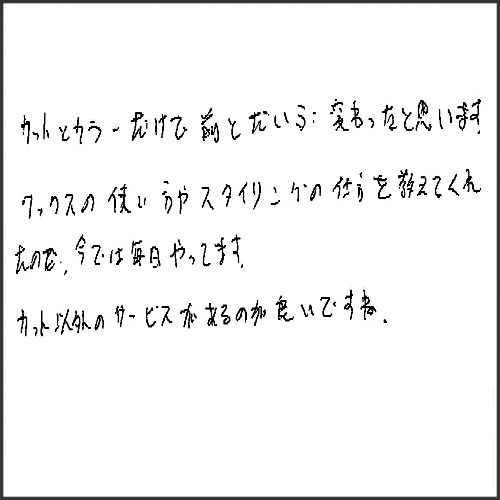 カットとカラーだけで前とだいぶ変わったと思います
ワックスの使い方やスタイリングの仕方を教えてくれ
たので、今では毎日やってます。
カット以外のサービスがあるのが良いですね。